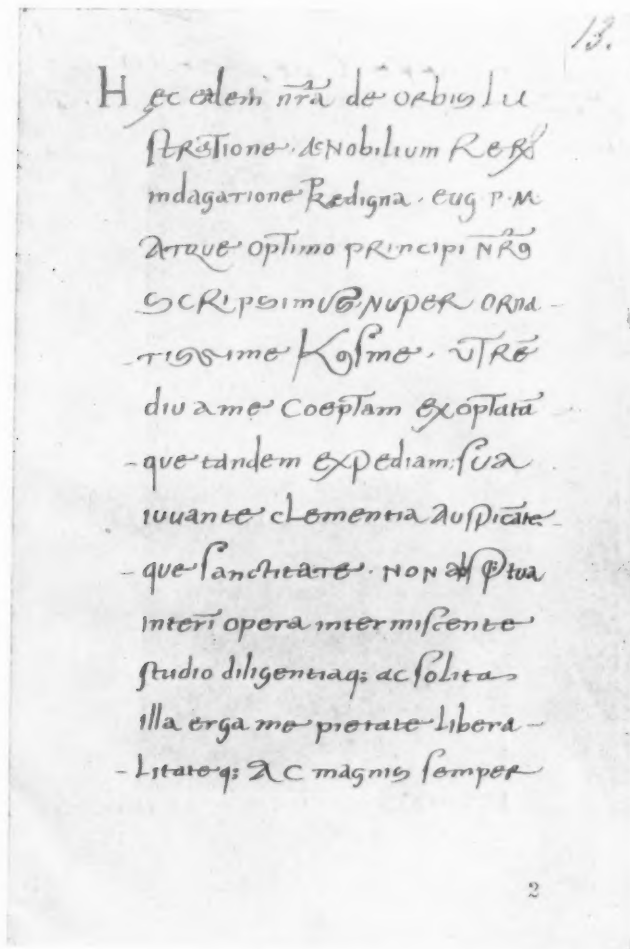 13.
Hec eadem nr̄a de orbis lu
stratione · & Nobilium ReRꝝ
indagatione Predigna · eug · P · M
ATque opTimo pRincipi NR̄o
scRipsimus NupeR ORna -
- Tissime Kosme · uT Rē
diu a me Coeptam exoptatā
- que tandem expediam: sua
iuuante cLementia Auspicate -
- que sanctitate · NON tua
interī opera intermiscente
studio diligentiaq; ac solita
illa erga me pietate Libera -
- Litateq; AC magnis semper
2